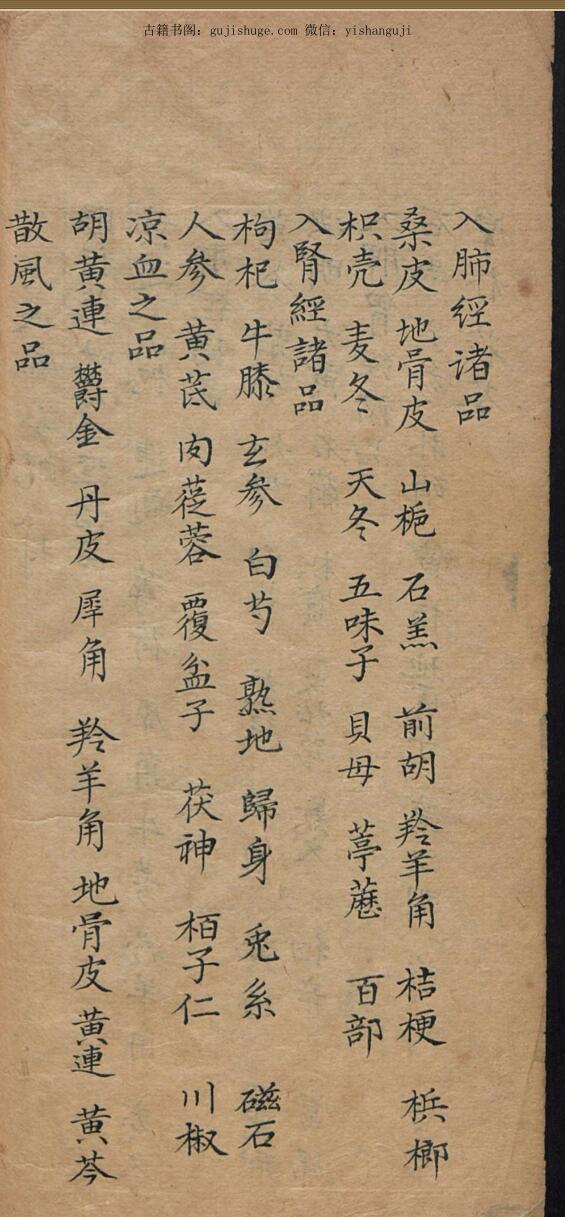 古籍书阁：gujishuge.com 微信：yishanguji
入肺經诸品
桑皮 地骨皮 山栀 石羔 前胡 羚羊角 桔梗 梹榔
枳壳 麦冬 天冬 五味子 貝母 葶藶 百部
入腎經諸品
枸杞 牛膝 玄参 白芍 熟地 歸身 兎糸 磁石
人参 黄芪 肉蓯蓉 覆盆子 茯神 栢子仁 川椒
凉血之品
胡黄連 欝金 丹皮 犀角 羚羊角 地骨皮 黄連 黄芩
散風之品